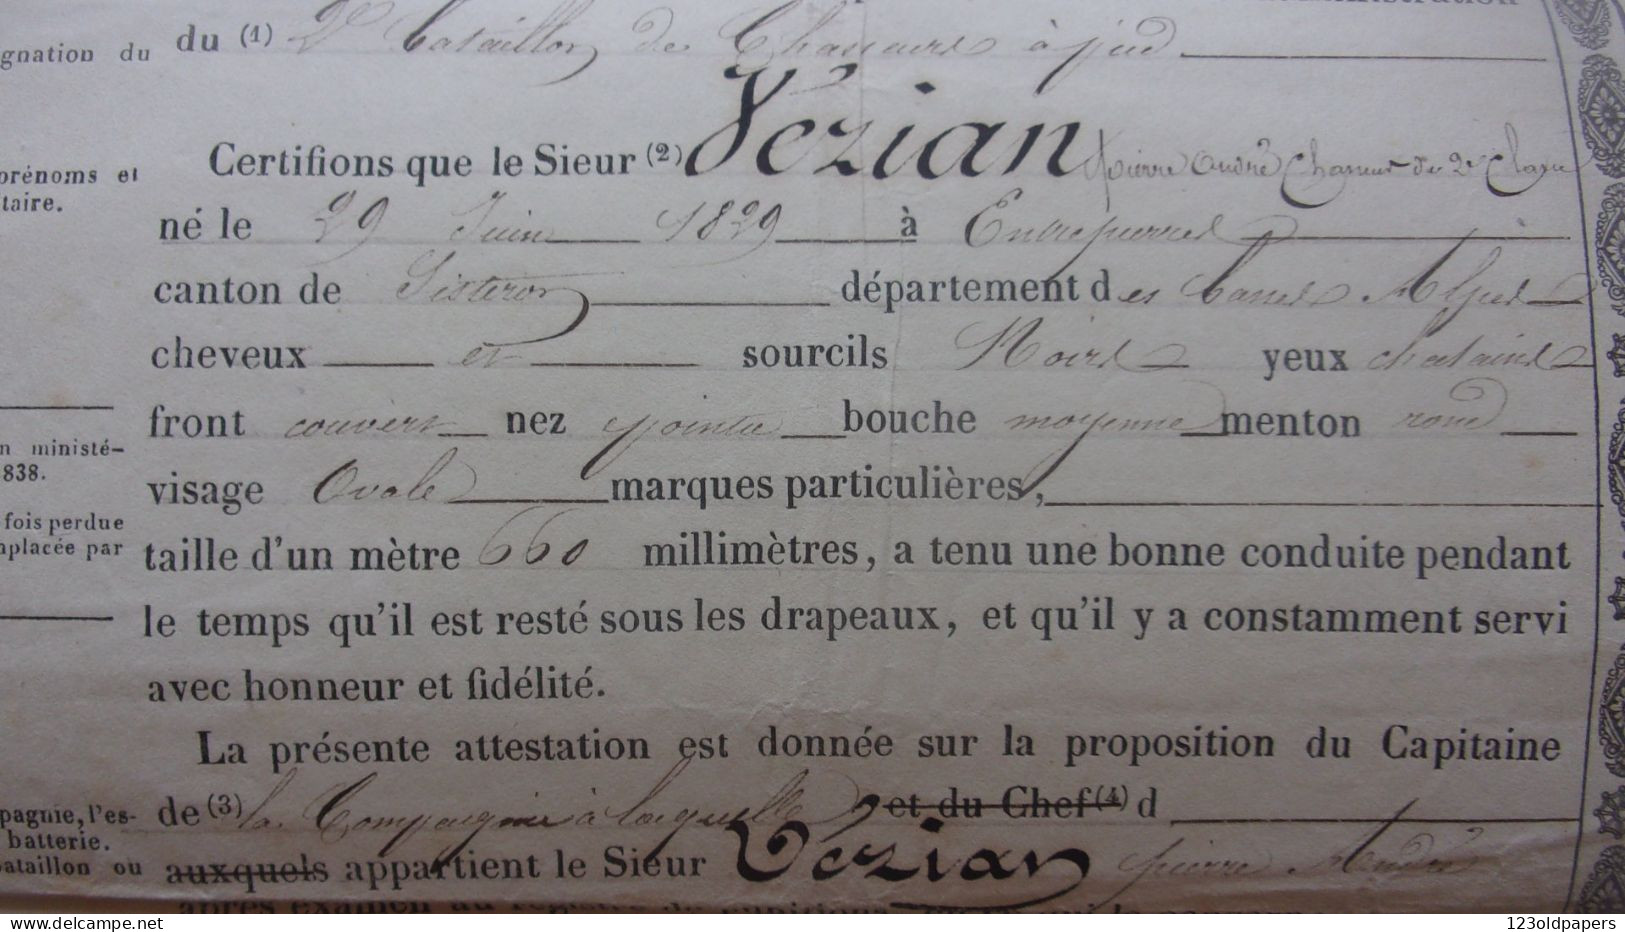 du (1) 2e bataillon de Chasseurs à pied
gnation du
Certifions que le Sieur (2) Vézian pierre andré Chasseur de 2e Classe
prénoms et
taire.
né le 29 Juin 1829 à Entrepierres
canton de Sisteron département des basses Alpes
cheveux et sourcils Noirs yeux chatains
front couvert nez pointu bouche moyenne menton rond
n ministé-
838.
visage Ovale marques particulières,
fois perdue
mplacée par
taille d'un mètre 660 millimètres, a tenu une bonne conduite pendant
le temps qu'il est resté sous les drapeaux, et qu'il y a constamment servi
avec honneur et fidélité.
La présente attestation est donnée sur la proposition du Capitaine
de (3) la Compagnie à laquelle et du Chef (4) d
pagnie, l'es-
batterie.
bataillon ou
auxquels appartient le Sieur Vézian pierre André
après examen au registre de punitions
123oldpapers